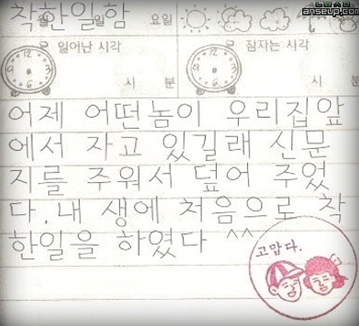 착한일함
월 일 요일
일어난 시각 잠자는 시각
시 분 시 분
어제 어떤놈이 우리집앞
에서 자고 있길래 신문
지를 주워서 덮어 주었
다. 내 생에 처음으로 착
한일을 하였다 ^^
고맙다.
anseup.com